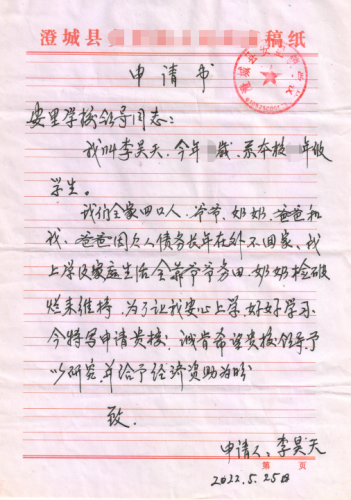 澄城县 稿纸
申请书
安里学校领导同志：
我叫李昊天，今年 岁，系本校 年级
学生。
我们全家四口人，爷爷、奶奶、爸爸和
我、爸爸因欠人债务长年在外不回家、我
上学及家庭生活全靠爷爷务田、奶奶捡破
烂来维持，为了让我安心上学，好好学习，
今特写申请贵校，诚肯希望贵校领导予
以研究，并给予经济资助为盼
致.
申请人、李昊天
第 页
2022.5.25日